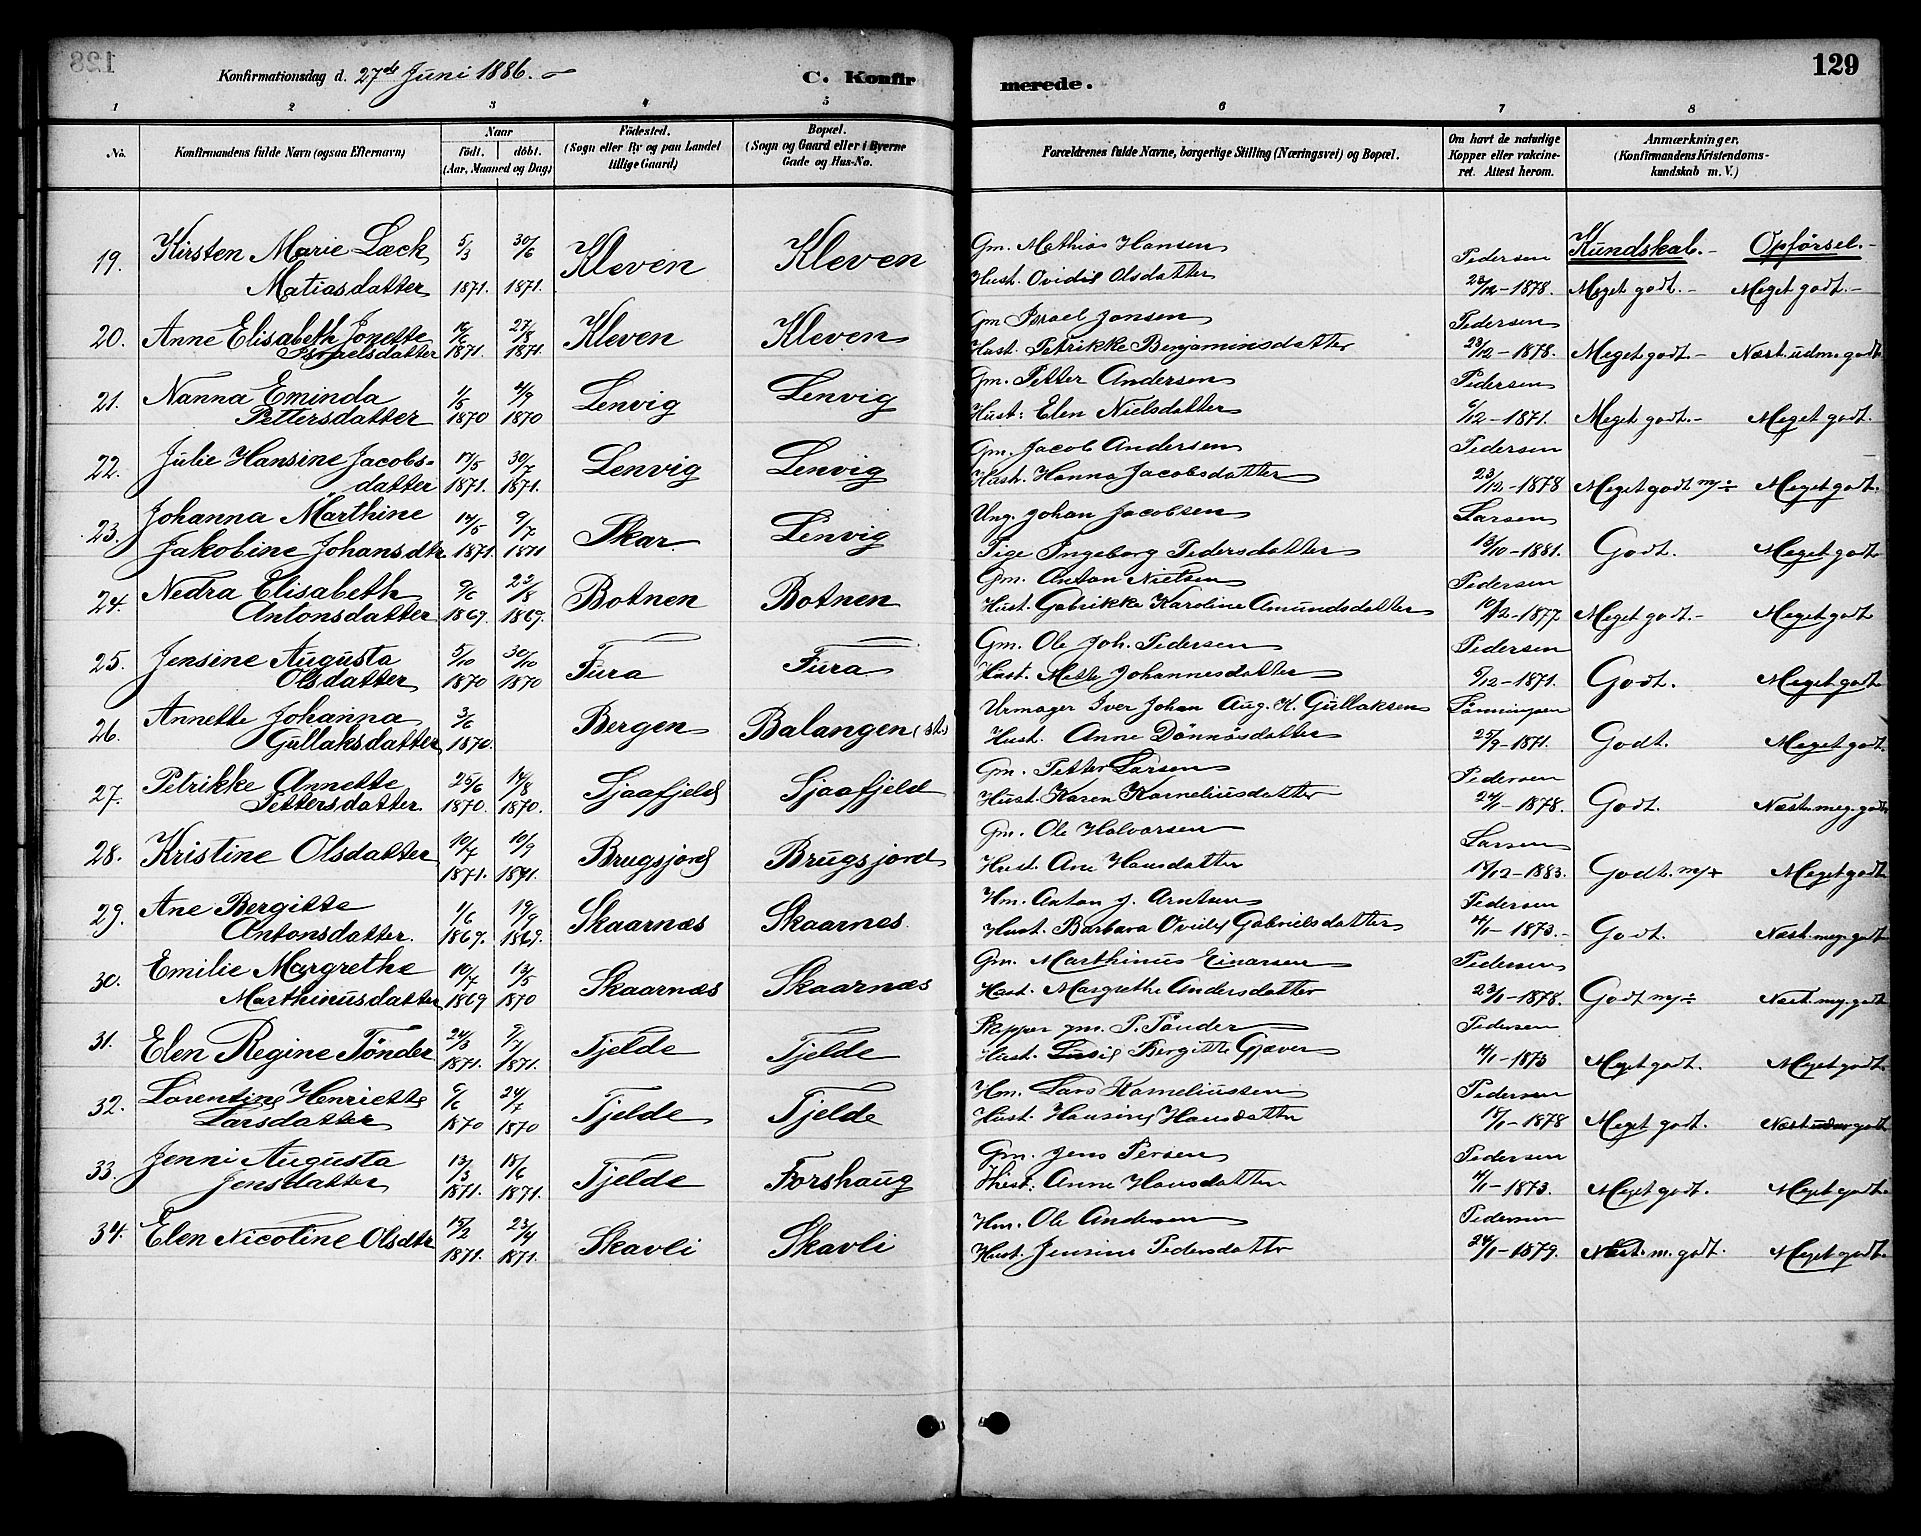 Konfirmationsdag d. 27de Juni 1886. C. Konfirmerede. 129
1 2 3 4 5 6 7 8
No. Konfirmandens fulde Navn (ogsaa Efternavn) Naar født. døbt. (Aar, Maaned og Dag) Fødested. (Sogn eller By og paa Landet tillige Gaard) Bopæl. (Sogn og Gaard eller i Byerne Gade og Hus-No. Forældrenes fulde Navne, borgerlige Stilling (Næringsvei) og Bopæl. Om havt de naturlige Kopper eller vakcineret. Attest herom. Anmærkninger. (Konfirmandens Kristendomskundskab m. V.)
Kundskab. - Opførsel. -
19. Kirsten Marie Læck 5/3 30/6 Kleven Kleven Gm. Mathias Hansen Pedersen
Matiasdatter 1871. 1871. Hust. Ovidie Olsdatter 23/12-1878. Meget godt. - Meget godt. -
20. Anne Elisabeth Jonette 27/8 Kleven Kleven Gm Israel Jonsen Pedersen
Israelsdatter 1871. 1871. Hust. Petrikke Benjaminsdatter 23/12-1878. Meget godt - Næst. udm. godt
21. Nanna Eminda 1/5 4/9 Lenvig Lenvig Gm. Petter Andersen Pedersen
Pettersdatter 1870 1870 Hust: Elen Nielsdatter 6/12-1871. Meget godt. - Meget godt.
22. Julie Hansine Jacobs- 17/5 30/7 Lenvig Lenvig Gm. Jacob Andersen Pedersen
datter 1871. 1871. Hust. Hanna Jacobsdatter 23/12-1878 Meget godt m/÷ Meget godt.
23. Johanna Marthine 14/5 9/7 Skar Lenvig Ung. Johan Jacobsen Larsen
Jakobine Johansdtr 1871. 1871 Pige Ingeborg Pedersdatter 13/10-1881. Godt. Meget godt
24. Nedra Elisabeth 9/6 23/8 Botnen Botnen Gm. Anton Nielsen Pedersen
Antonsdatter 1869. 1869. Hust. Gabrikke Karoline Amundsdatter 10/12-1877 Meget godt. - Meget godt
25. Jensine Augusta 5/10 30/10 Fura Fura Gm. Ole Joh. Pedersen Pedersen
Olsdatter 1870 1870 Hust. Mette Johannesdatter 5/12-1871. Godt. Meget godt
26. Annette Johanna 3/6 Bergen Balangen (st.) Urmager Iver Johan Aug. K. Gullaksen Lønningsen
Gullaksdatter 1870. Hust. Anne Dønnøsdatter 25/9-1871. Godt. Meget godt
27. Petrikke Annette 25/6 14/8 Sjaafjeld Sjaafjeld Gm. Petter Larsen Pedersen
Pettersdatter 1870. 1870. Hust. Karen Korneliusdatter 24/1-1878. Godt. Næst. meg. godt
28. Kristine Olsdatter 10/7 10/9 Brugsjord Brugsjord Gm. Ole Halvorsen Larsen
1871. 1871. Hust. Ane Hansdatter 17/12-1883. Godt. m/÷ Meget godt
29. Ane Bergitte 1/6 19/9 Skaarnæs Skaarnes. Hm. Anton J. Arntsen Pedersen
Antonsdatter. 1869. 1869. Hust. Barbara Ovidie Gabrielsdatter 4/1-1873. - Godt. Næst. meg. godt
30. Emilie Margrethe 10/7 13/5 Skaarnæs Skaarnæs Gm. Marthinus Einarsen Pedersen
Marthinusdatter 1869 1870 Hust. Margrethe Andersdatter 23/1-1878. Godt m/÷ Næst. meg. godt
31. Elen Regine Tønder 24/3 2/7 Tjelde Tjelde Skipper gm. P. Tønder Pedersen
1871. 1871. Hust. Bergitte Gjæver 4/1-1873 Meget godt. Meget godt
32. Lorentine Henriette 6/6 24/7 Tjelde Tjelde Hm. Lars Korneliussen Pedersen
Larsdatter 1870 1870 Hust. Hansine Hansdatter 18/1-1878 Meget godt. Næst udm godt
33. Jenni Augusta 13/3 18/6 Tjelde Forshaug Gm. Jens Persen Pedersen
Jensdatter 1871. 1871. Hust: Anne Hansdatter 4/1-1873. Meget godt. Meget godt.
34. Elen Nicoline Olsdtr 15/2 23/4 Skavli Skavli Hm. Ole Andersen Pedersen
1871. 1871. Hust. Jensine Pedersdatter 24/1-1879. Næst. m. godt. Meget godt.